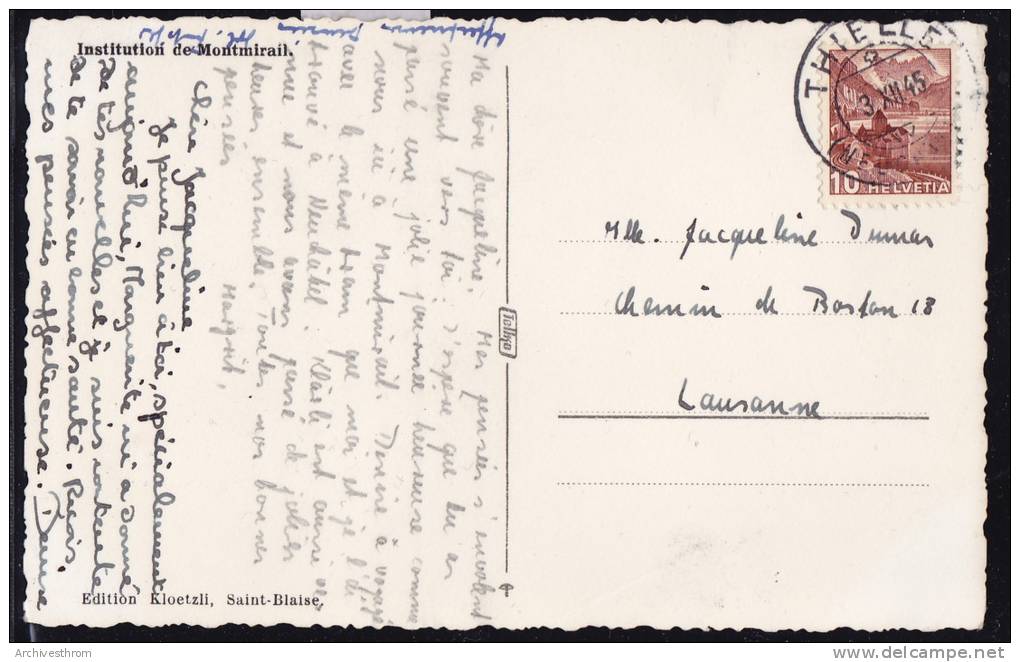 Institution de Montmirail.
Ma chère Jacqueline. Mes pensées s'envolent
souvent vers toi. J'espère que tu as
passé une jolie journée heureuse comme
nous ici à Montmirail. Denise a voyagé
avec le même train que moi et je l'ai
trouvé à Neuchâtel. Kläsli est aussi ve-
nue et nous avons passé de jolies
heures ensemble. Toutes nos bonnes
pensées
Margrit.
Chère Jacqueline
Je pense bien à toi, spécialement
aujourd'hui, Marguerite m'a donné
de tes nouvelles et je suis contente
de te savoir en bonne santé. Reçois
mes pensées affectueuses. Denise
Edition Kloetzli, Saint-Blaise.
THIELLE
3 XII 45
10 HELVETIA
Mlle. Jacqueline Dumas
Chemin de Boston 18
Lausanne
Archivesthrom
www.delcampe.net